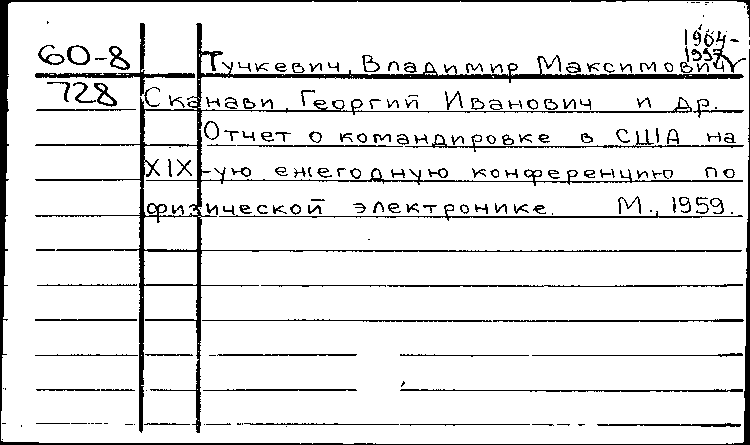 1904-
1997
60-8 Тучкевич, Владимир Максимович
728 Сканави, Георгий Иванович и др.
Отчет о командировке в США на
XIX-ую ежегодную конференцию по
физической электронике. М., 1959.